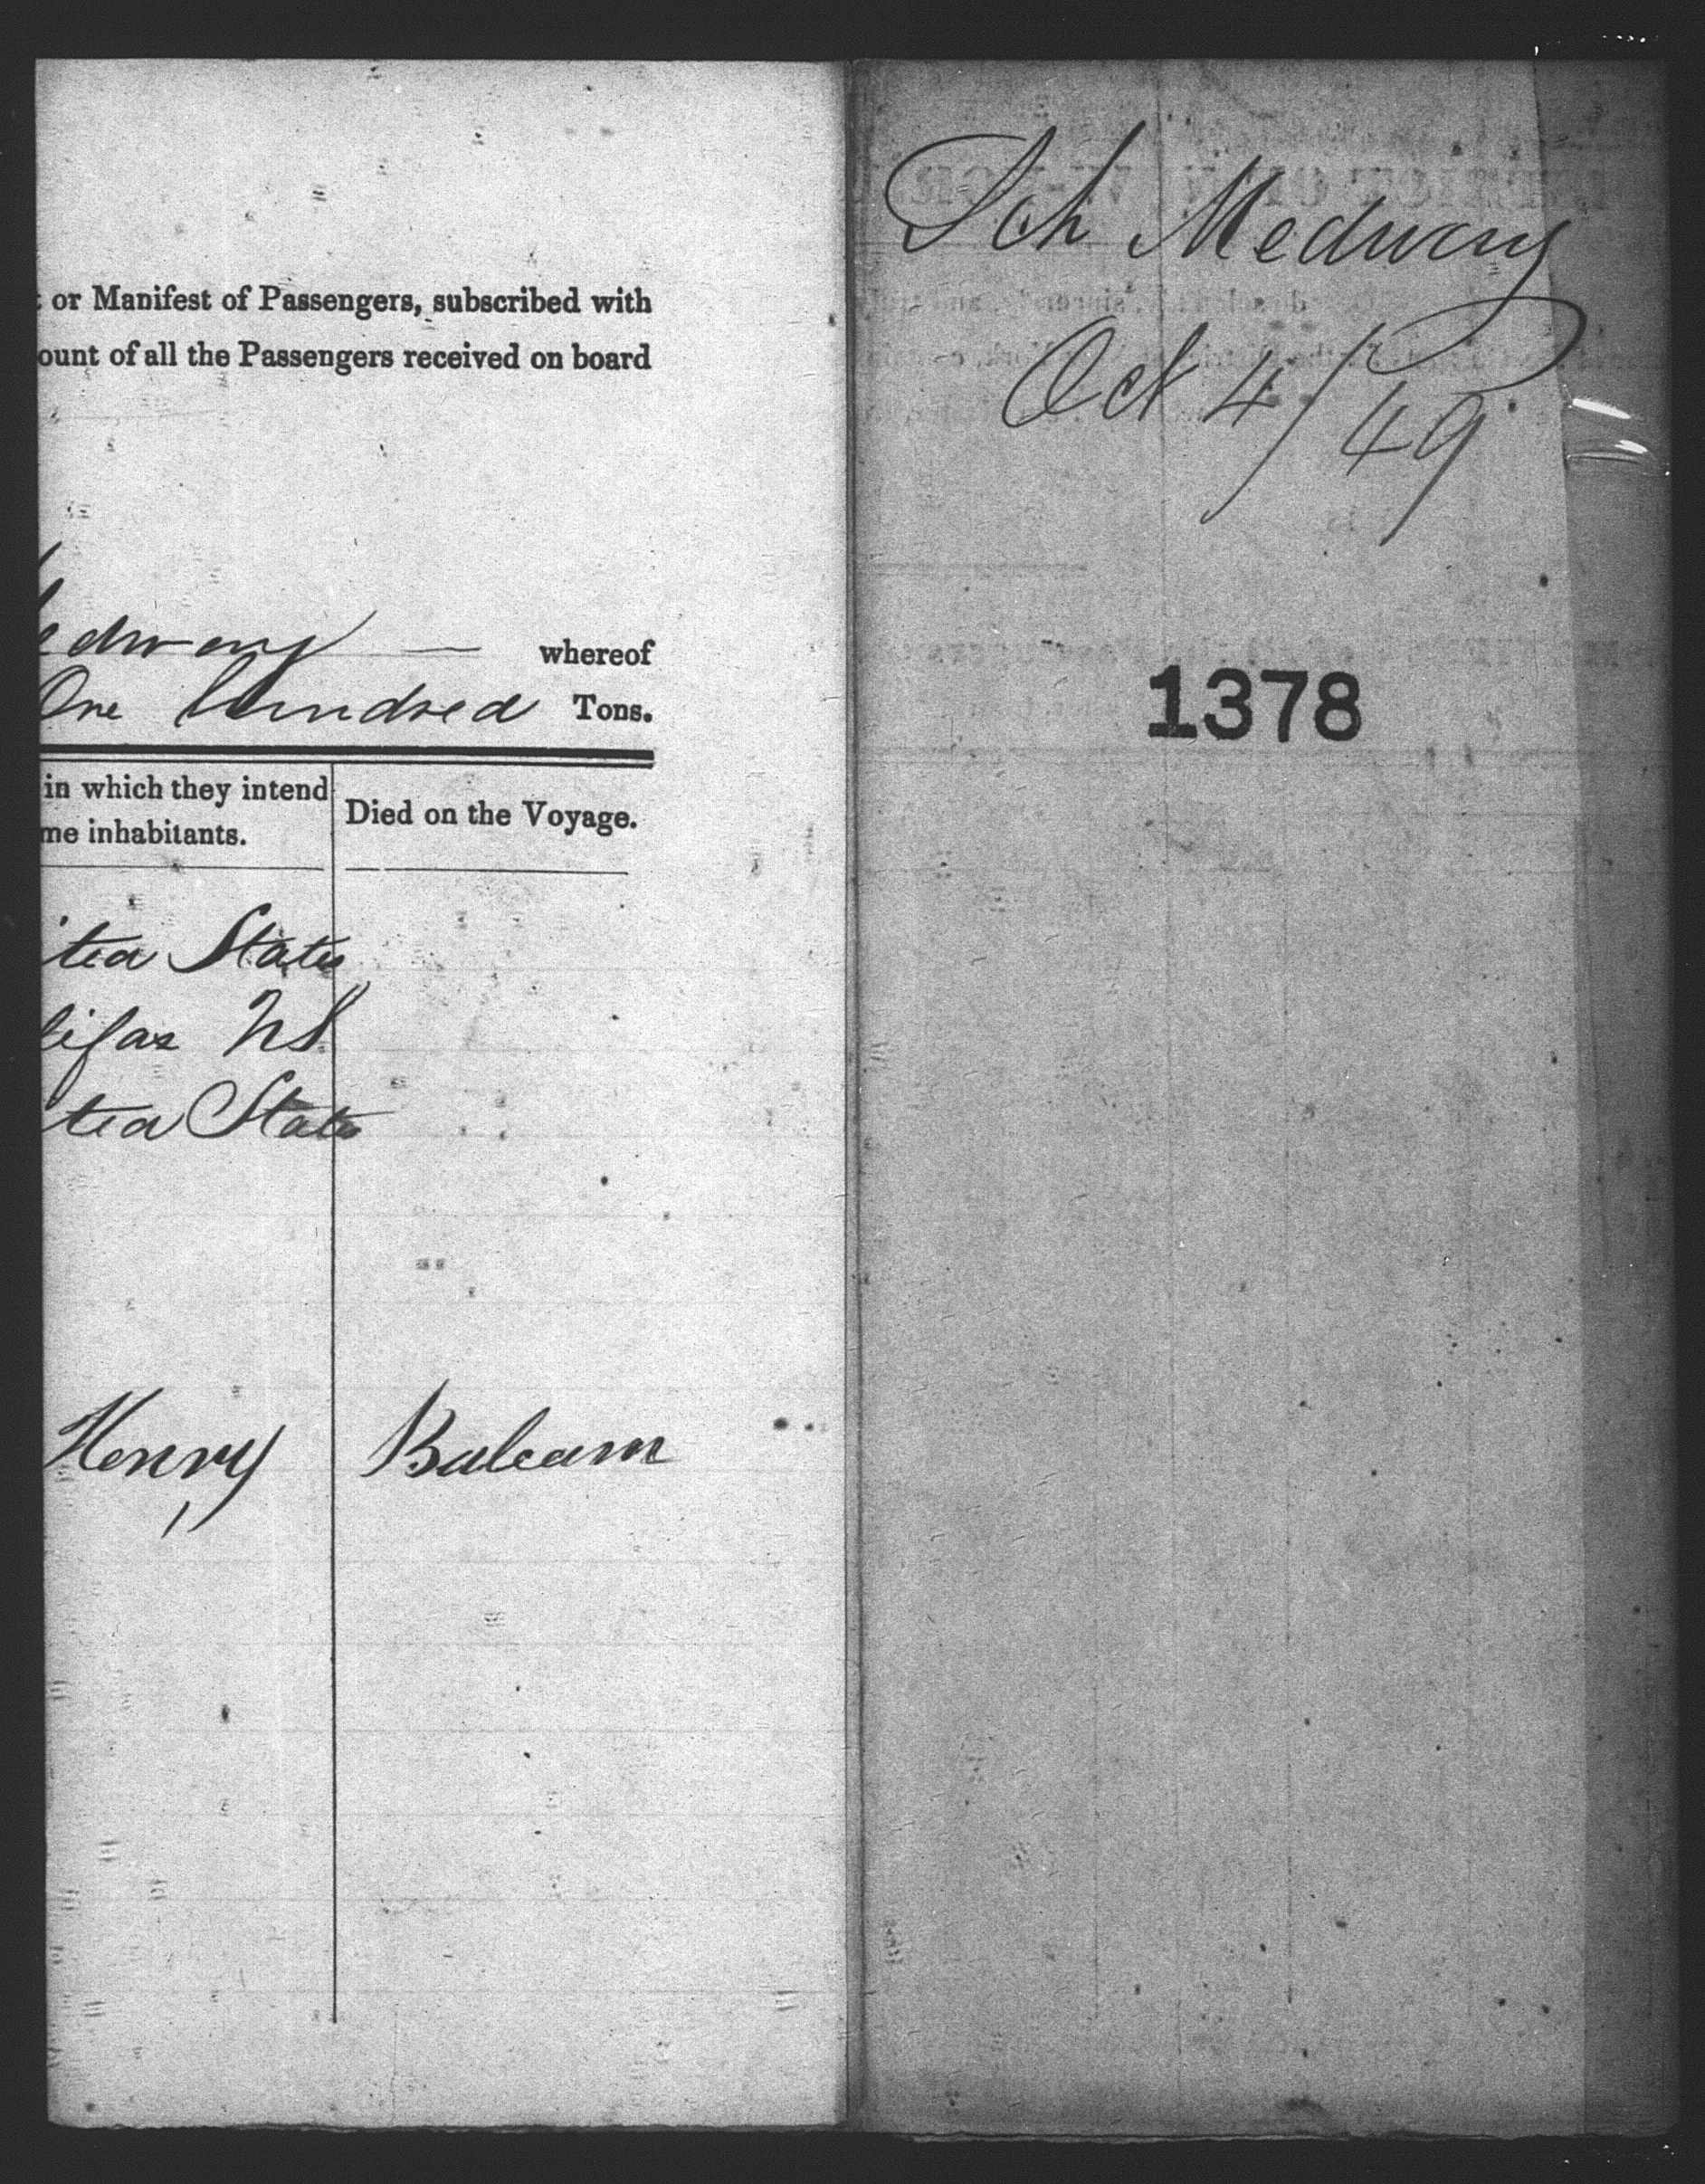 or Manifest of Passengers, subscribed with
ount of all the Passengers received on board
edway — whereof
One Hundred Tons.
in which they intend
me inhabitants.
Died on the Voyage.
ited States
lifax NS
ted States
Henry Balcam
Sch Medway
Oct 4/49
1378